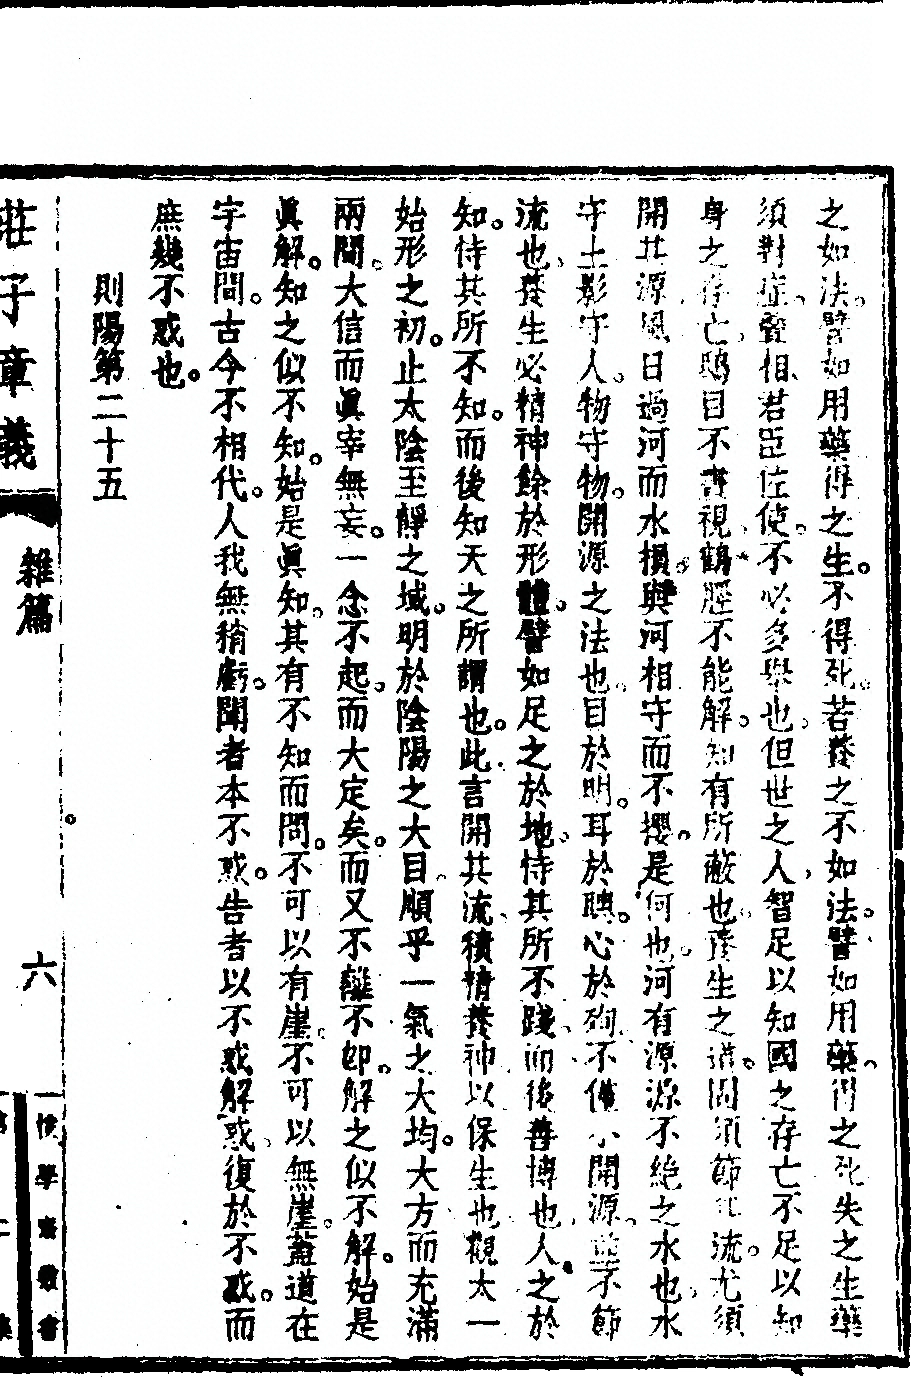 之如法。譬如用藥得之生。不得死。若養之不如法。譬如用藥。得之死失之生藥
須對症。醫相君臣佐使。不必多舉也。但世之人。智足以知國之存亡不足以知
身之存亡。鴟目不書視。鶴脛不能解。知有所蔽也。養生之道。固須節其流。尤須
開其源。風日過河而水損。與河相守而不攖。是何也。河有源源不絶之水也。水
守土影守人。物守物。開源之法也。目於明。耳於聰。心於殉。不僅不開源。並不節
流也。養生必精神餘於形體。譬如足之於地。恃其所不踐。而後善博也。人之於
知。恃其所不知。而後知天之所謂也。此言開其流。積精養神以保生也。觀太一
始形之初。止太陰至靜之域。明於陰陽之大目。順乎一氣之大均。大方而充滿
兩間。大信而眞宰無妄。一念不起。而大定矣。而又不離不卽。解之似不解。始是
眞解。知之似不知。始是眞知。其有不知而問。不可以有崖。不可以無崖。蓋道在
宇宙間。古今不相代。人我無稍虧。聞者本不惑。告者以不惑解惑。復於不惑。而
庶幾不惑也。
則陽第二十五
莊子章義
雜篇
六